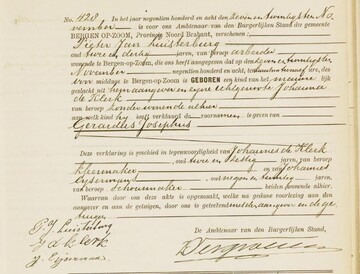 No. 428 In het jaar negentien honderd en acht den zeven en twintigsten No-
vember is voor ons Ambtenaar van den Burgerlijken Stand der gemeente
BERGEN OP-ZOOM, Provincie Noord Brabant, verschenen:
Pieter Jan Luisterburg
oud twee en dertig jaren, van beroep arbeider
wonende te Bergen-op-Zoom, die ons heeft aangegeven dat op den zeven en twintigsten
November negentien honderd en acht, ure, des
middags te Bergen-op-Zoom is GEBOREN een kind van het geslacht
uit hem aangever en zijne echtgenoote Johanna
de Klerk
van beroep zonder wonende alhier
aan welk kind hij heeft verklaard de voornamen is geven van
Gerardus Josephus
Deze verklaring is geschied in tegenwoordigheid van Johannes de Klerk
oud twee en zestig jaren, van beroep
en van Johannes
oud negen en twintig jaren,
van beroep schoenmaker beiden wonende alhier.
Waarvan door ons deze akte is opgemaakt, welke na gedane voorlezing aan den
aangever en aan de getuigen, door ons is geteekend met den aangever en de ge-
tuigen
De Ambtenaar van den Burgerlijken Stand,
P. J. Luisterburg
J. de Klerk